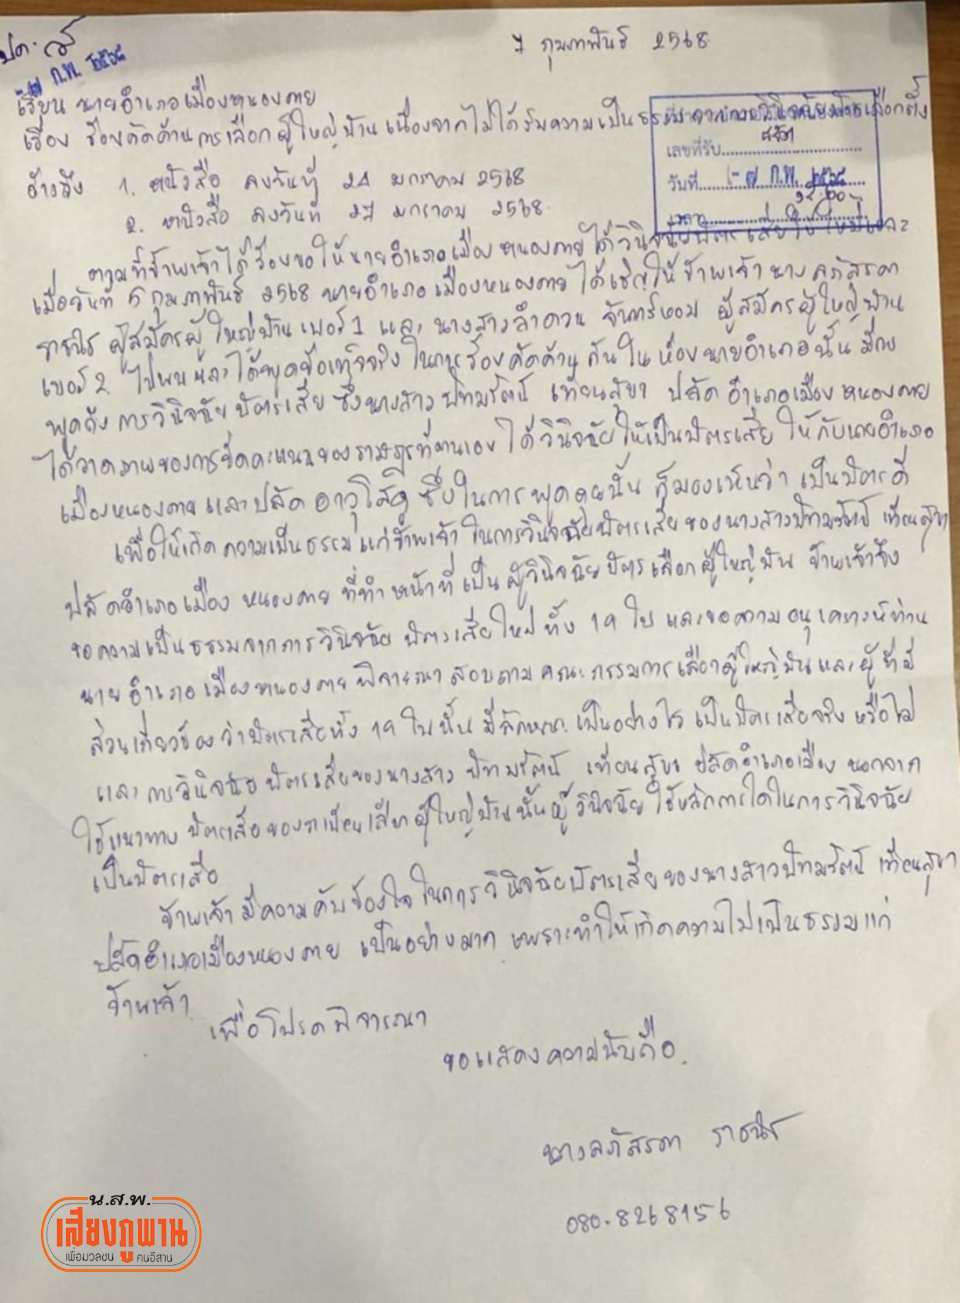 7 กุมภาพันธ์ 2568
ปค.
ก.พ. ๒๕๖๘
เรียน นายอำเภอเมืองหนองคาย
เรื่อง ร้องคัดค้านการเลือกผู้ใหญ่บ้านเนื่องจากไม่ได้รับความเป็นธรรมจากการวินิจฉัยบัตรเลือกตั้ง
เลขที่รับ
วันที่ - ๗ ก.พ. ๒๕๖๘
เวลา
อ้างถึง 1. หนังสือ ลงวันที่ 24 มกราคม 2568
2. หนังสือ ลงวันที่ 27 มกราคม 2568
ตามที่ข้าพเจ้าได้ร้องขอให้นายอำเภอเมืองหนองคายได้วินิจฉัยบัตรเสียใหม่และ
เมื่อวันที่ 5 กุมภาพันธ์ 2568 นายอำเภอเมืองหนองคายได้เชิญให้ข้าพเจ้า นางลภัสรดา
ราชนิร ผู้สมัครผู้ใหญ่บ้านเบอร์ 1 และ นางสาวลำดวน จันทร์หอม ผู้สมัครผู้ใหญ่บ้าน
เบอร์ 2 ไปพบและได้พูดข้อเท็จจริงในการร้องคัดค้านกันในห้องนายอำเภอนั้น มีการ
พูดถึงการวินิจฉัยบัตรเสีย ซึ่งนางสาวปัทมรัตน์ เทียนสุขา ปลัดอำเภอเมืองหนองคาย
ได้วาดภาพของการขีดคะแนนของราษฎรที่ตนเองได้วินิจฉัยให้เป็นบัตรเสีย ให้กับนายอำเภอ
เมืองหนองคายและปลัดอาวุโสดู ซึ่งในการพูดคุยนั้น ก็มองเห็นว่า เป็นบัตรดี
เพื่อให้เกิดความเป็นธรรมแก่ข้าพเจ้าในการวินิจฉัยบัตรเสียของนางสาวปัทมรัตน์ เทียนสุขา
ปลัดอำเภอเมืองหนองคาย ที่ทำหน้าที่เป็นผู้วินิจฉัยบัตรเลือกผู้ใหญ่บ้าน ข้าพเจ้าจึง
ขอความเป็นธรรมจากการวินิจฉัยบัตรเสียใหม่ทั้ง 19 ใบ และขอความอนุเคราะห์ท่าน
นายอำเภอเมืองหนองคายพิจารณาสอบถามคณะกรรมการเลือกผู้ใหญ่บ้านและผู้ที่มี
ส่วนเกี่ยวข้องว่าบัตรเสียทั้ง 19 ใบนั้น มีลักษณะเป็นอย่างไร เป็นบัตรเสียจริงหรือไม่
และการวินิจฉัยบัตรเสียของนางสาวปัทมรัตน์ เทียนสุขา ปลัดอำเภอเมือง นอกจาก
ใช้แนวทางบัตรเสียของระเบียบเลือกผู้ใหญ่บ้านนั้นผู้วินิจฉัยใช้หลักการใดในการวินิจฉัย
เป็นบัตรเสีย
ข้าพเจ้ามีความคับข้องใจในการวินิจฉัยบัตรเสียของนางสาวปัทมรัตน์ เทียนสุขา
ปลัดอำเภอเมืองหนองคาย เป็นอย่างมาก เพราะทำให้เกิดความไม่เป็นธรรมแก่
ข้าพเจ้า
เพื่อโปรดพิจารณา
ขอแสดงความนับถือ
นางลภัสรดา ราชนิร
080-8268156
น.ส.พ.
เสียงภูพาน
เพื่อมวลชน คนอีสาน